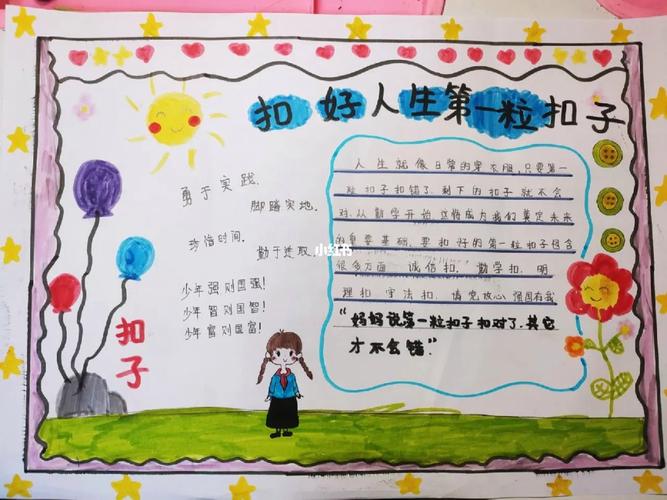 扣好人生第一粒扣子
勇于实践,
脚踏实地.
珍惜时间,
勤于进取
少年强则国强!
少年智则国智!
少年富则国富!
扣子
小红书
人生就像日常的穿衣服,只要第一
粒扣子扣错了,剩下的扣子就不会
对.从勤学开始 这将成为我们奠定未来
的重要基础,要扣好的第一粒扣子包含
很多方面 诚信扣,勤学扣,明
理扣 守法扣,请党放心 强国有我
“妈妈说第一粒扣子扣对了,其它
才不会错.”